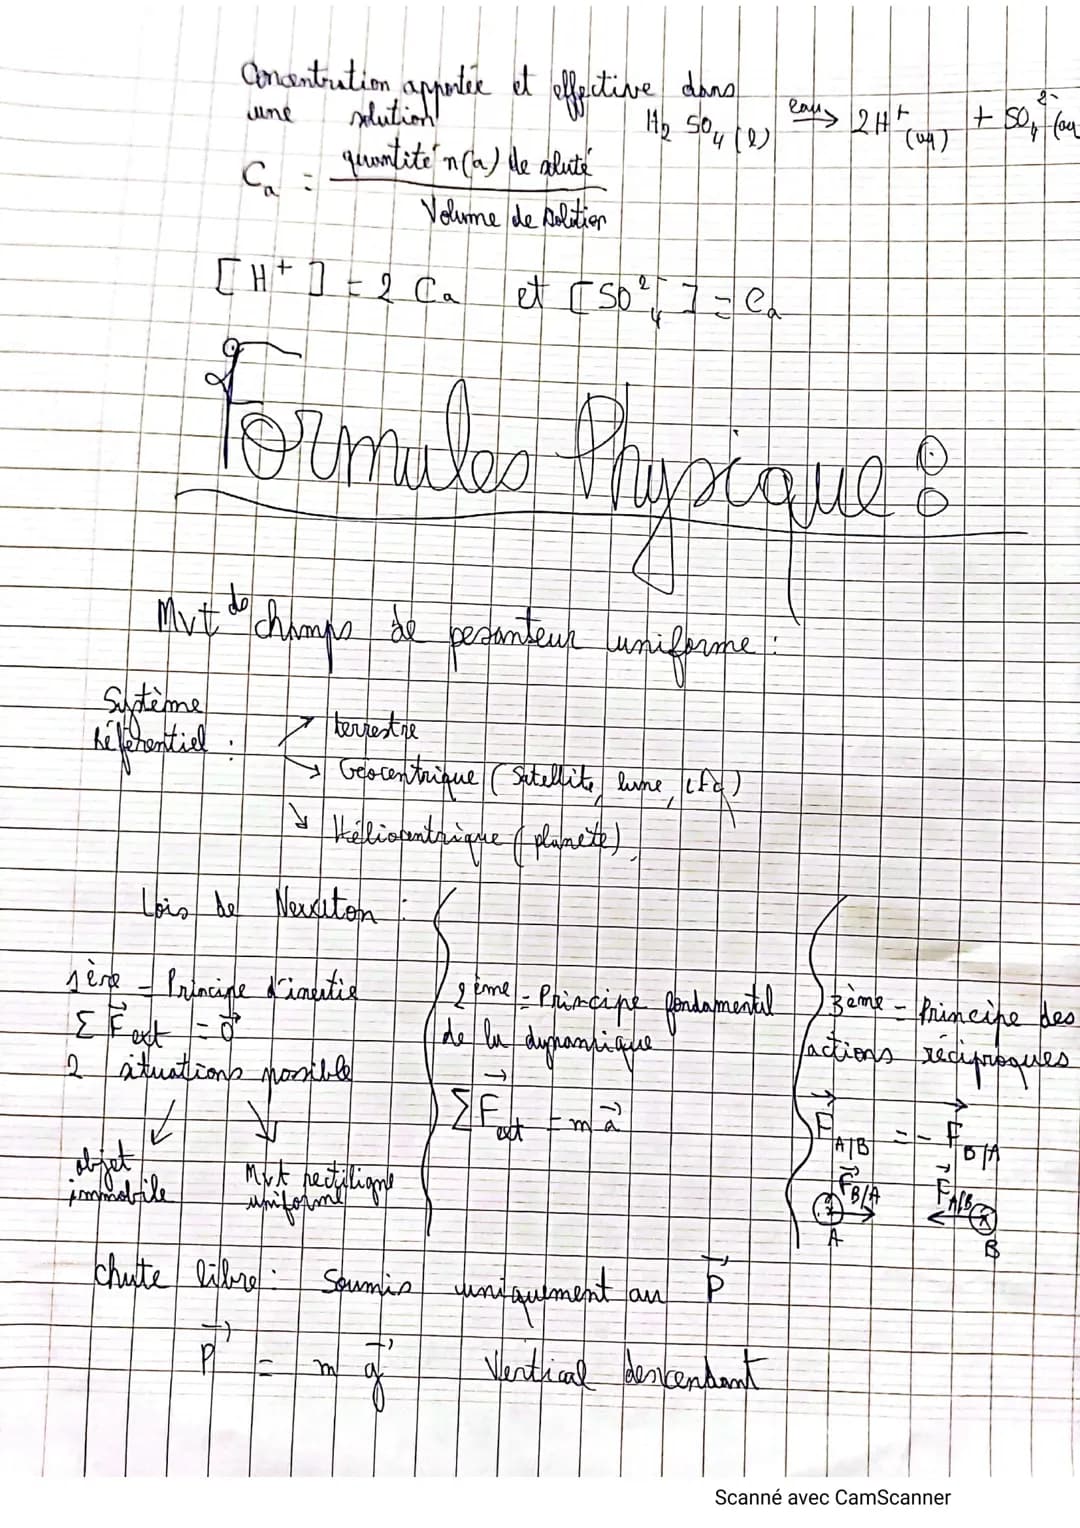 Concentration apportée et effective dans
une solution
H2 SO4 (l) eau→ 2H+ (aq) + SO4 2- (aq
Ca = quantité n(a) de soluté
Volume de solution
[H+] = 2 Ca et [SO4 2-] = Ca
Formules Physique :
Mvt de champs de pesanteur uniforme :
Système
Référentiel : → terrestre
→ Géocentrique (Satellite, lune,
→ Héliocentrique (planète)
Lois de Newton :
1ère - Principe d'inertie
Σ F ext = 0
2 situations possible
objet
immobile
Mvt rectiligne
uniforme
2ème - Principe fondamental
de la dynamique
Σ F ext = m a
3ème - Principe des
actions réciproques
F A/B = - F B/A
F B/A F A/B
A B
chute libre : Soumis uniquement au P
P = m g Vertical descendant
Scanné avec CamScanner